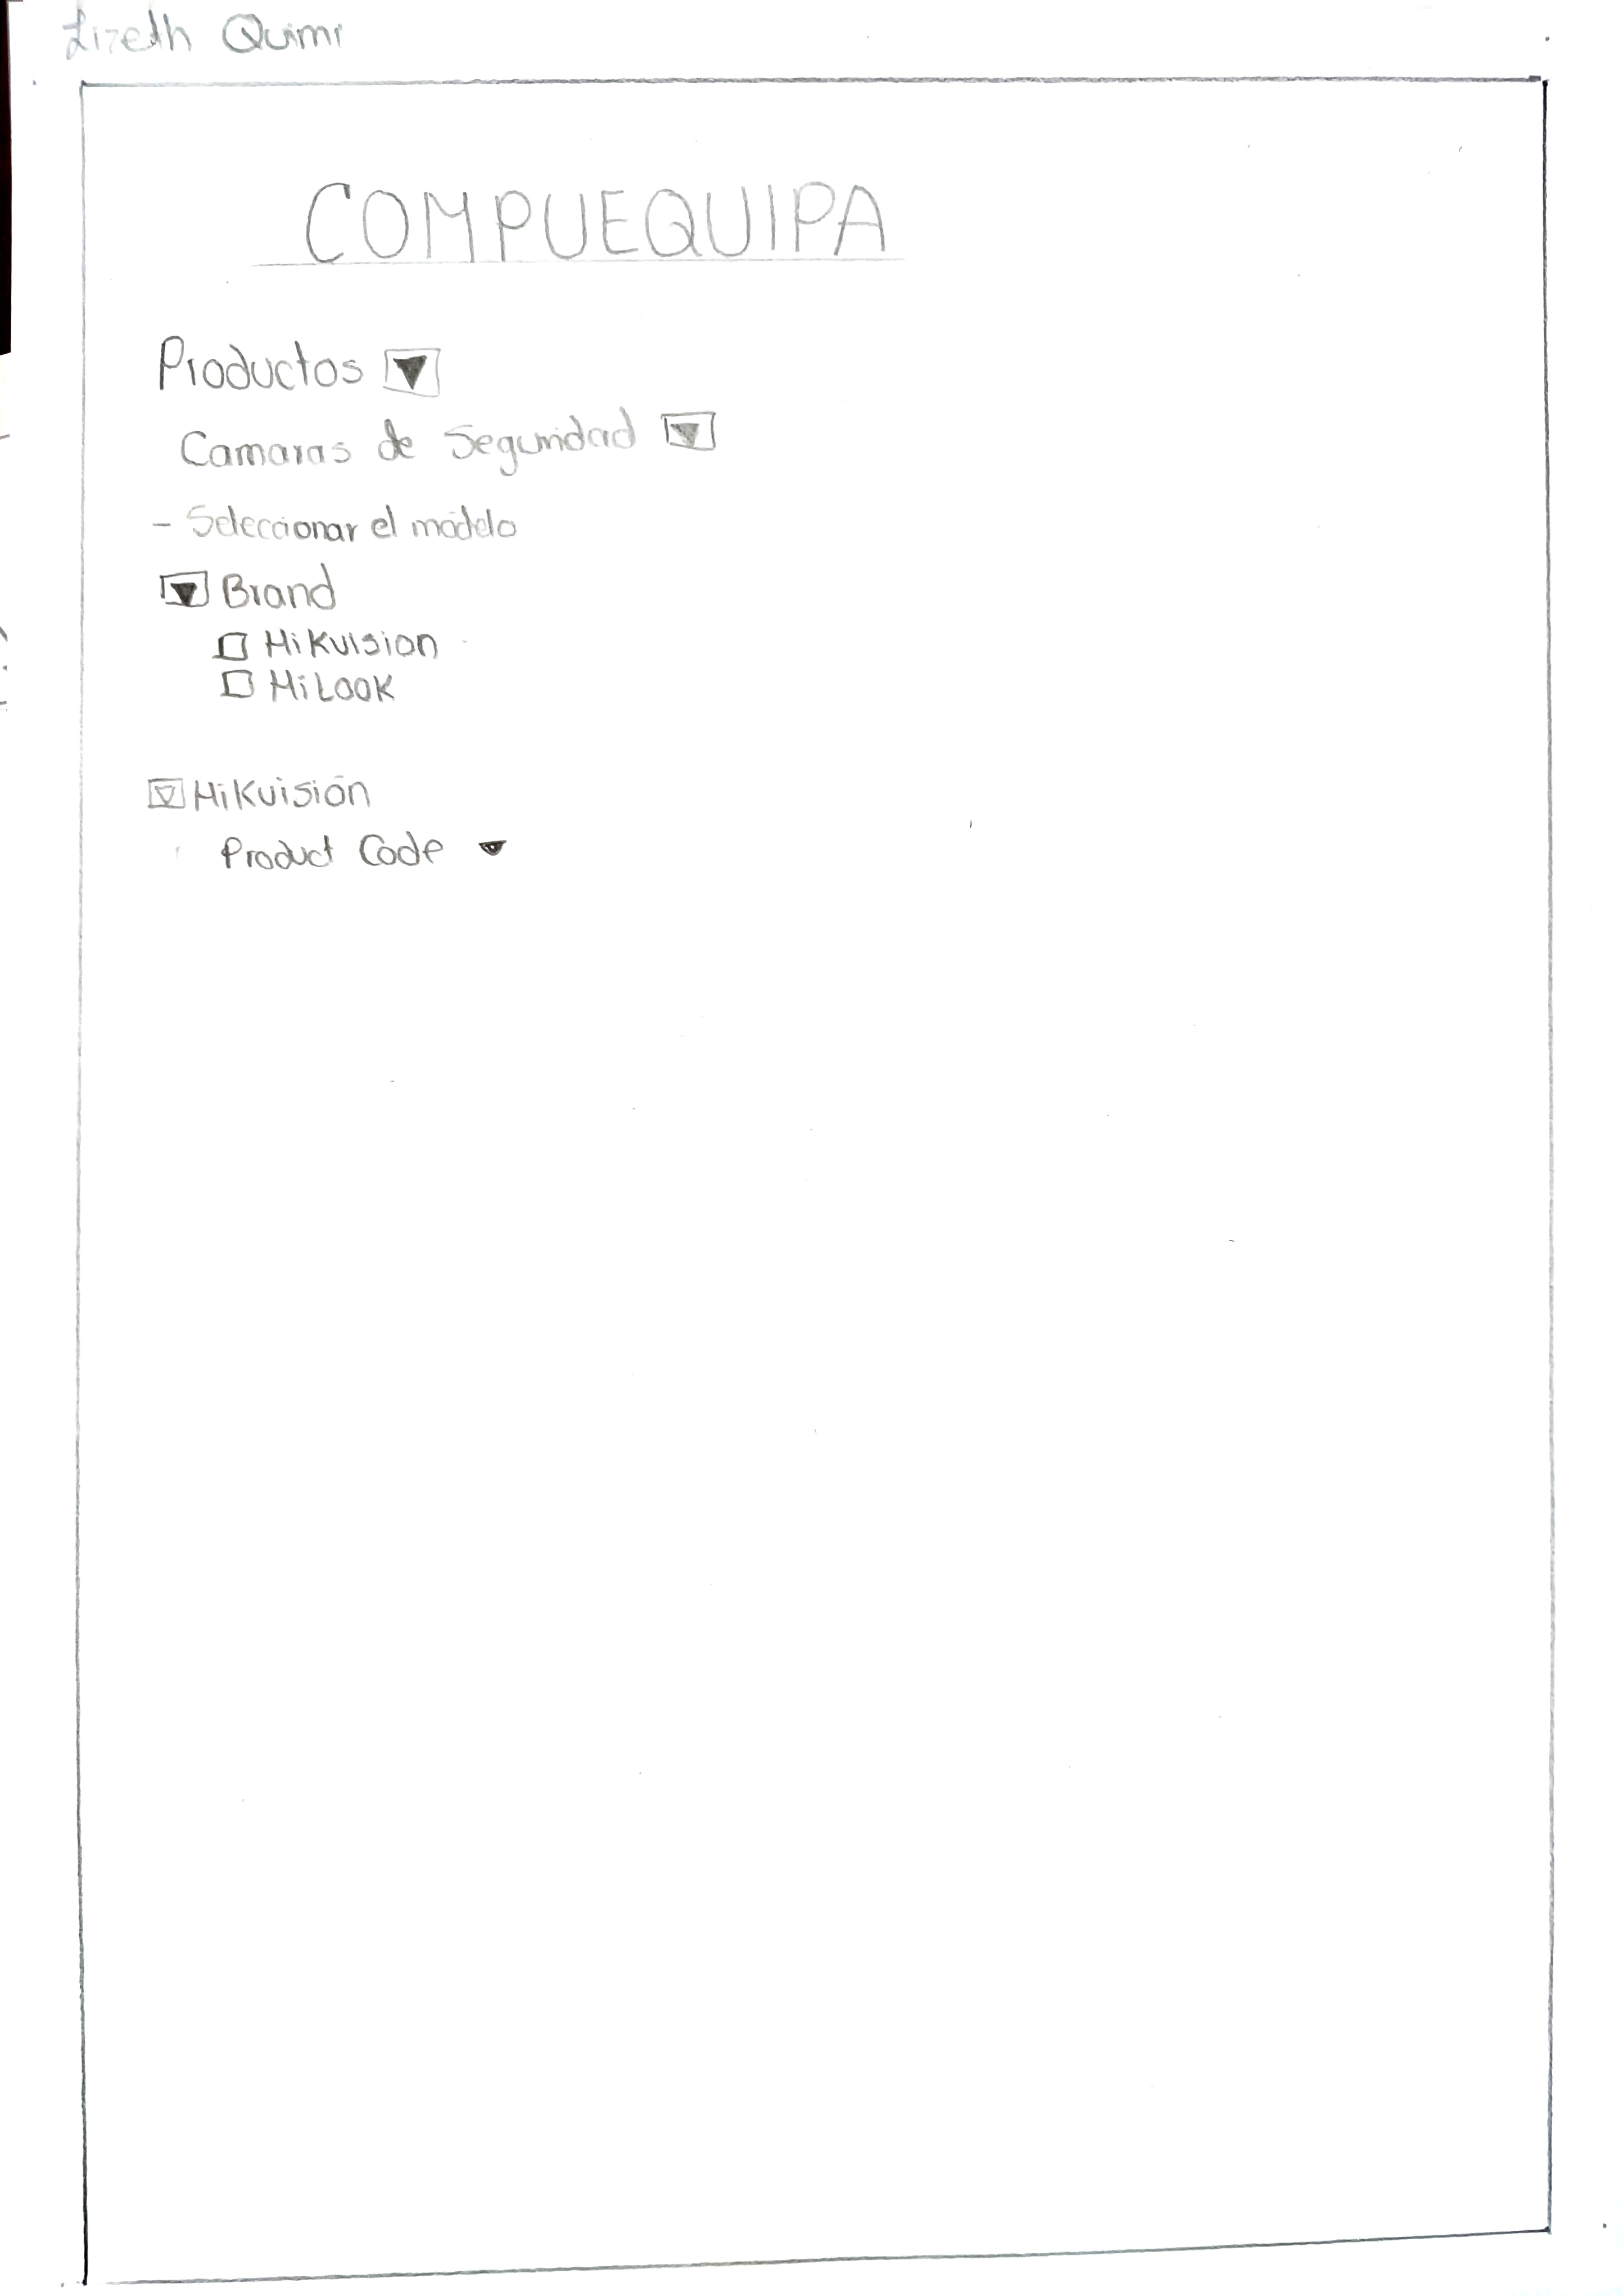 Lizeth Quimi
COMPUEQUIPA
Productos
Camaras de Seguridad
- Seleccionar el modelo
Brand
Hikvision
HiLook
Hikvisión
Product Code